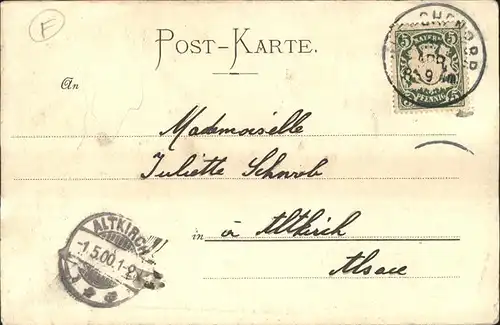 F
POST-KARTE.
An
Mademoiselle
Juliette Schwob
in à Altkirch
Alsace
ALTKIRCH
-1.5.00.1-2
5
5
PFENNIG